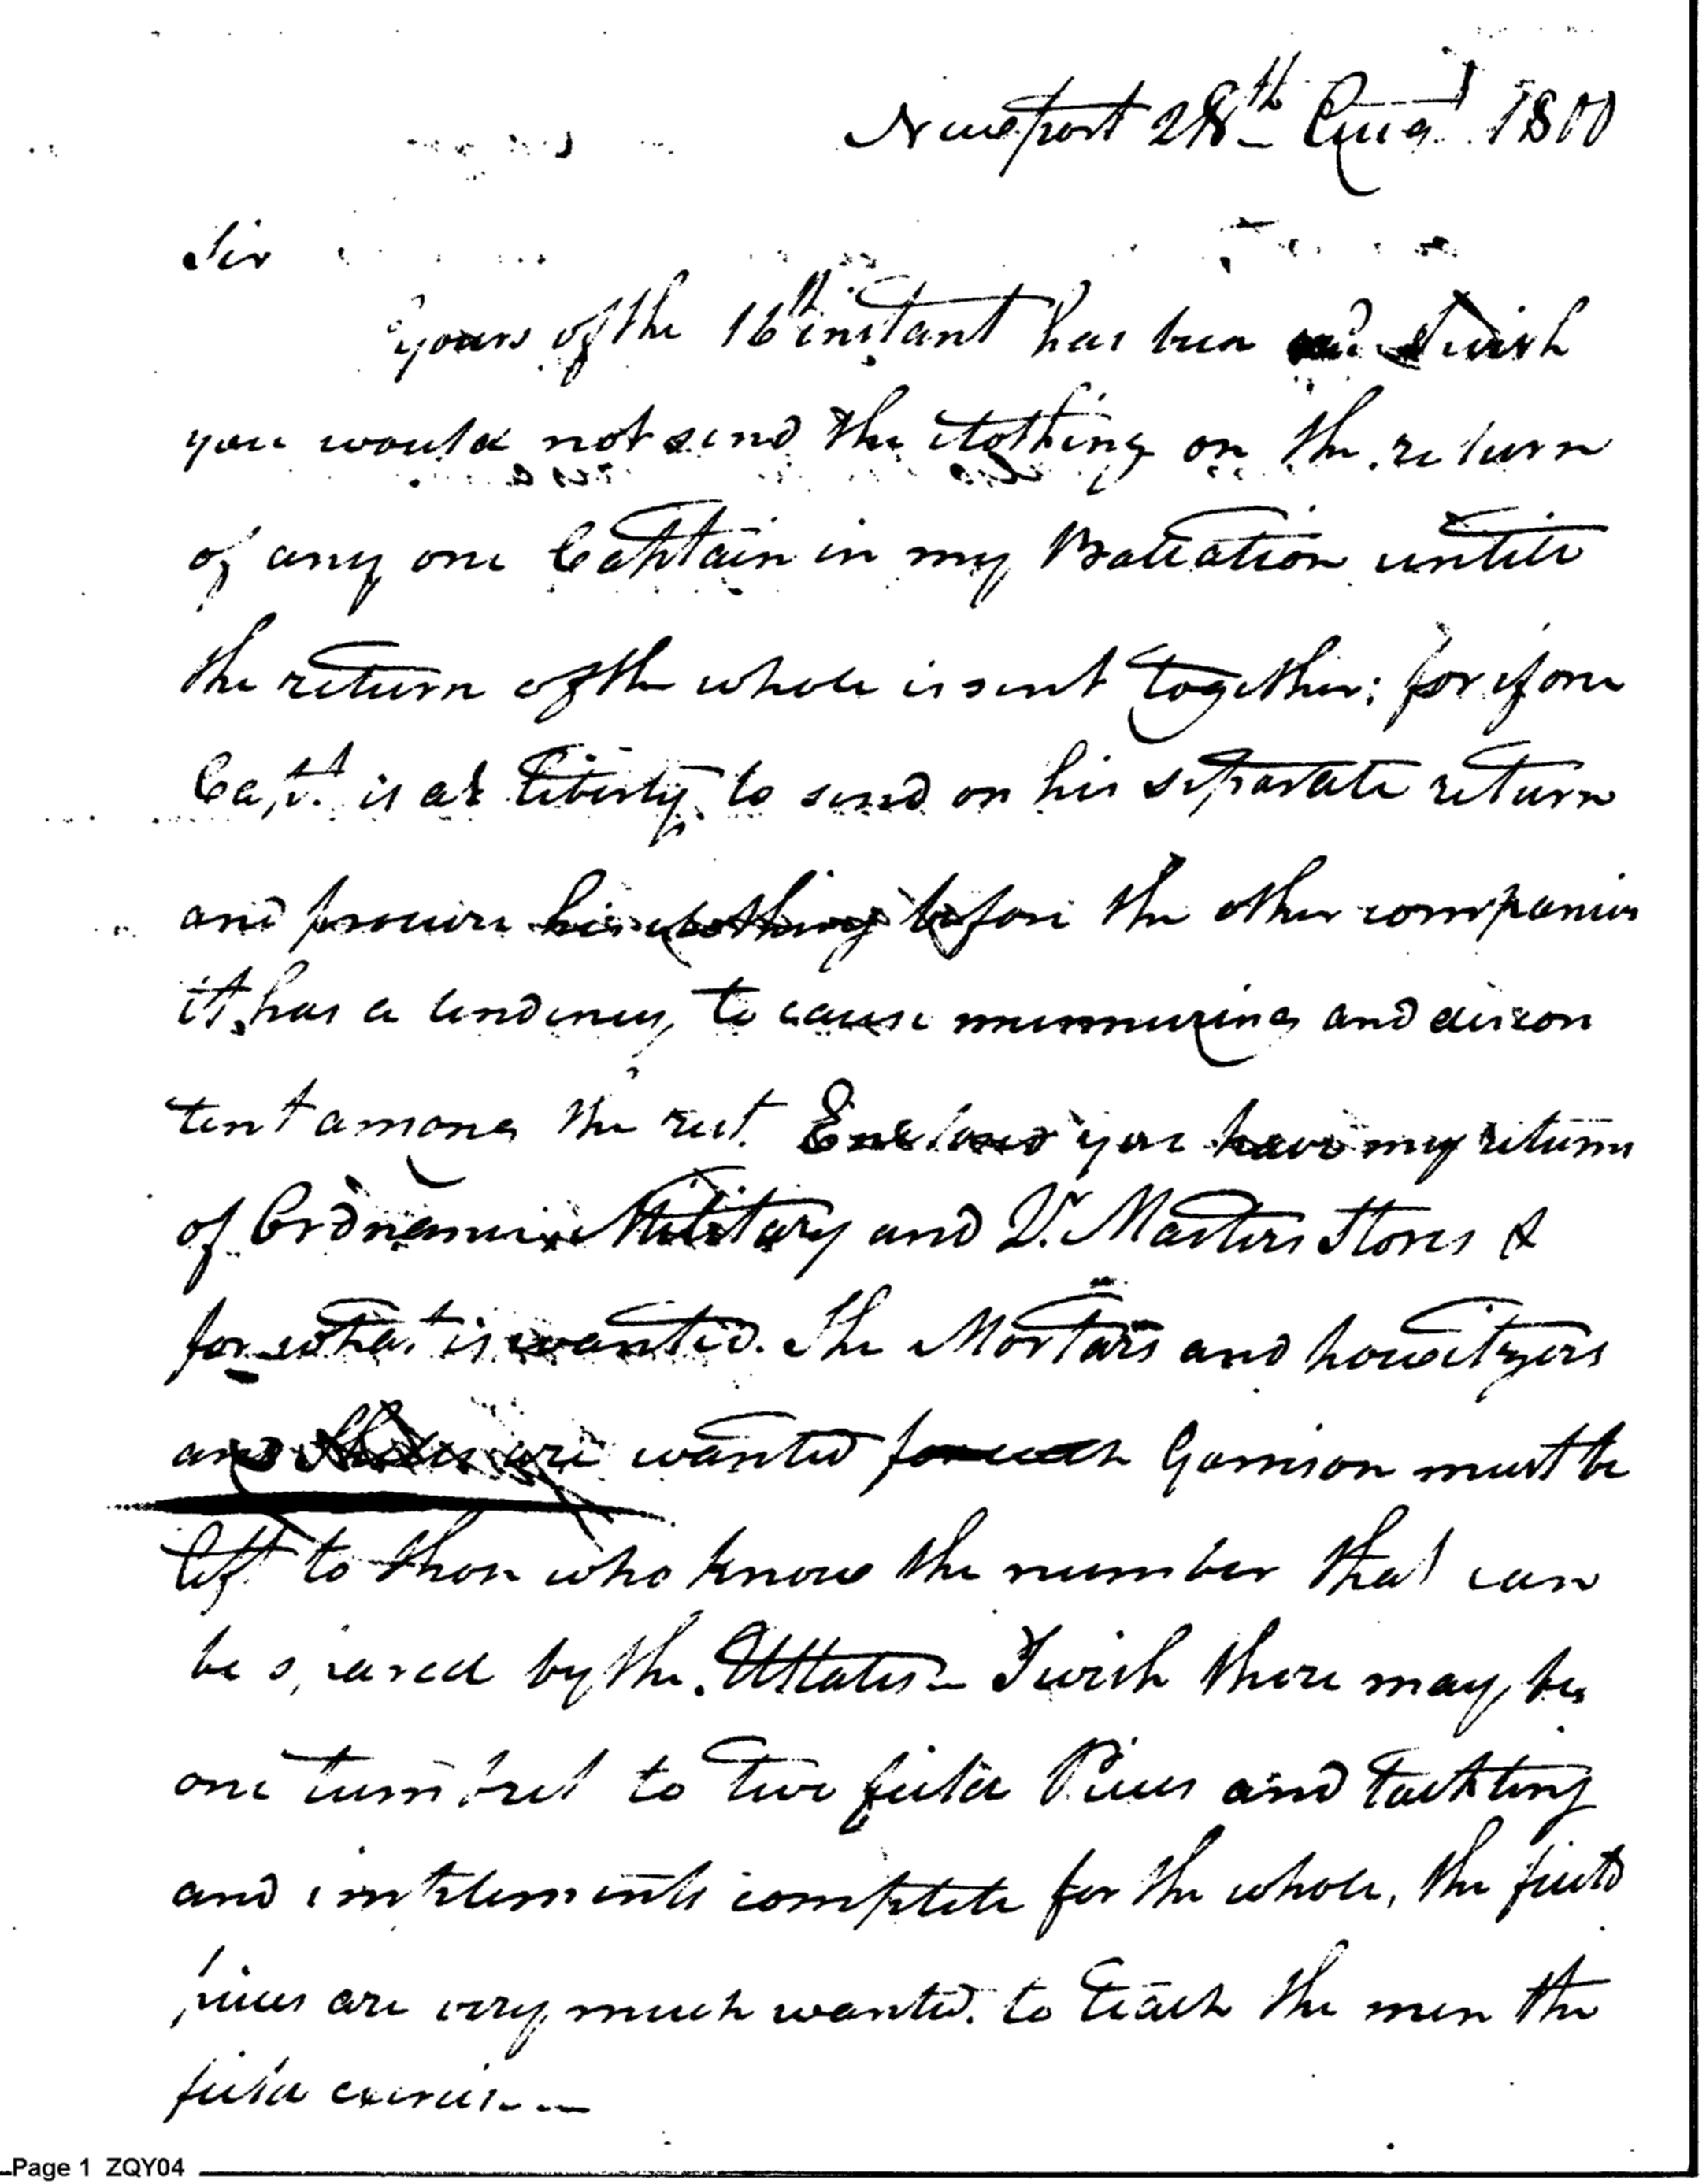 Newport 28th Augt 1800
Sir
Yours of the 16th instant has been recd I wish
you would not send the clothing on the return
of any one Captain in my Battalion untill
the return of the whole is sent together; for if one
Capt. is at liberty to send on his separate return
and procure his clothing before the other companies
it has a tendency to cause murmuring and discon
tent among the rest. Enclosed you have my returns
of Ordnance Military and Q. Masters Stores &
for what is wanted. The Mortars and howitzers
and are wanted for each Garrison must be
left to those who know the number that can
be spared by the UStates – I wish there may be
one tumbrel to two field Pieces and tackling
and implements complete for the whole, the field
pieces are very much wanted to teach the men the
field exercise —
Page 1 ZQY04